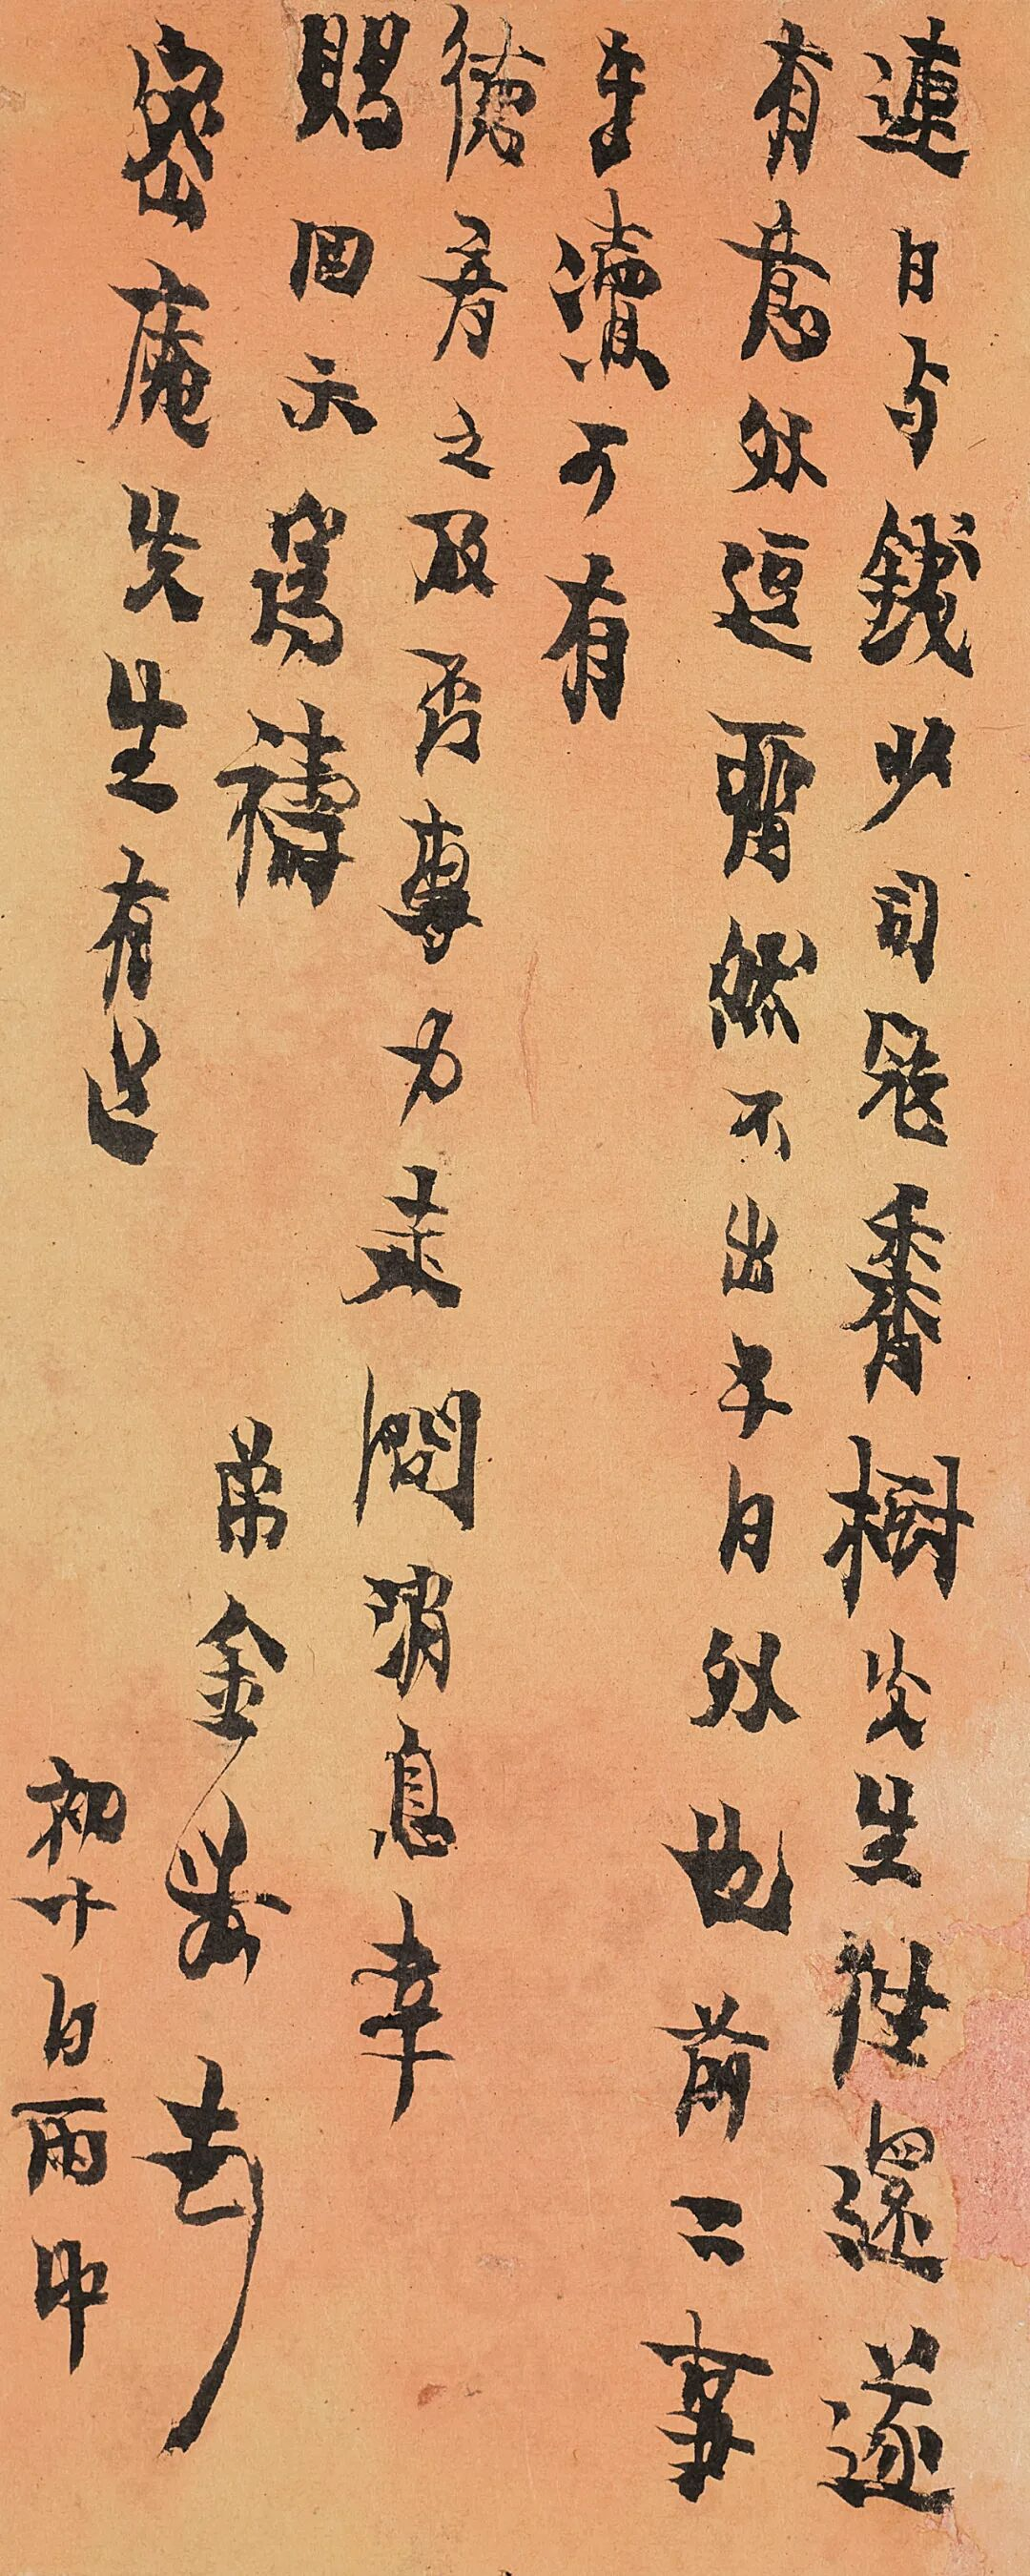 連日与錢少司寇香樹先生往還遂
有意外逗留然不出日外也前二事
奉瀆可有
德音之及否專力走聞消息幸
賜回示為禱
弟金農
密庵先生有道
初十日雨中